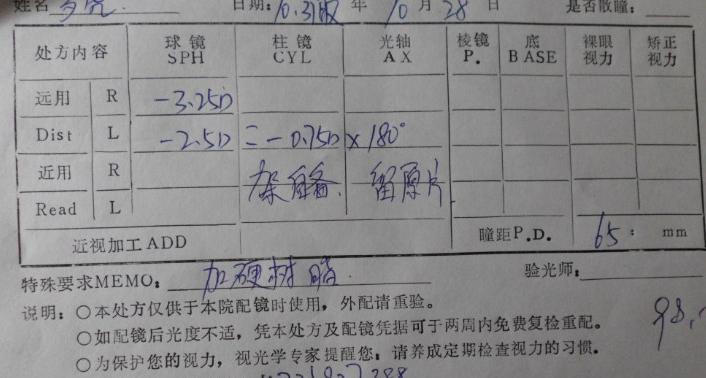 姓名 日期: 年 10 月 28 日 是否散瞳:
处方内容 球镜 SPH 柱镜 CYL 光轴 AX 棱镜 P. 底 BASE 裸眼视力 矫正视力
远用 R -3.25D
Dist L -2.5D = -0.75D × 180°
近用 R 架自备. 留原片
Read L
近视加工ADD 瞳距P.D. 65 : mm
特殊要求MEMO: 加硬树脂 验光师:
说明: ○本处方仅供于本院配镜时使用，外配请重验。
○如配镜后光度不适，凭本处方及配镜凭据可于两周内免费复检重配。
○为保护您的视力，视光学专家提醒您：请养成定期检查视力的习惯。